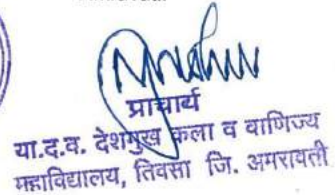 प्राचार्य
या.द.व. देशमुख कला व वाणिज्य
महाविद्यालय, तिवसा जि. अमरावती